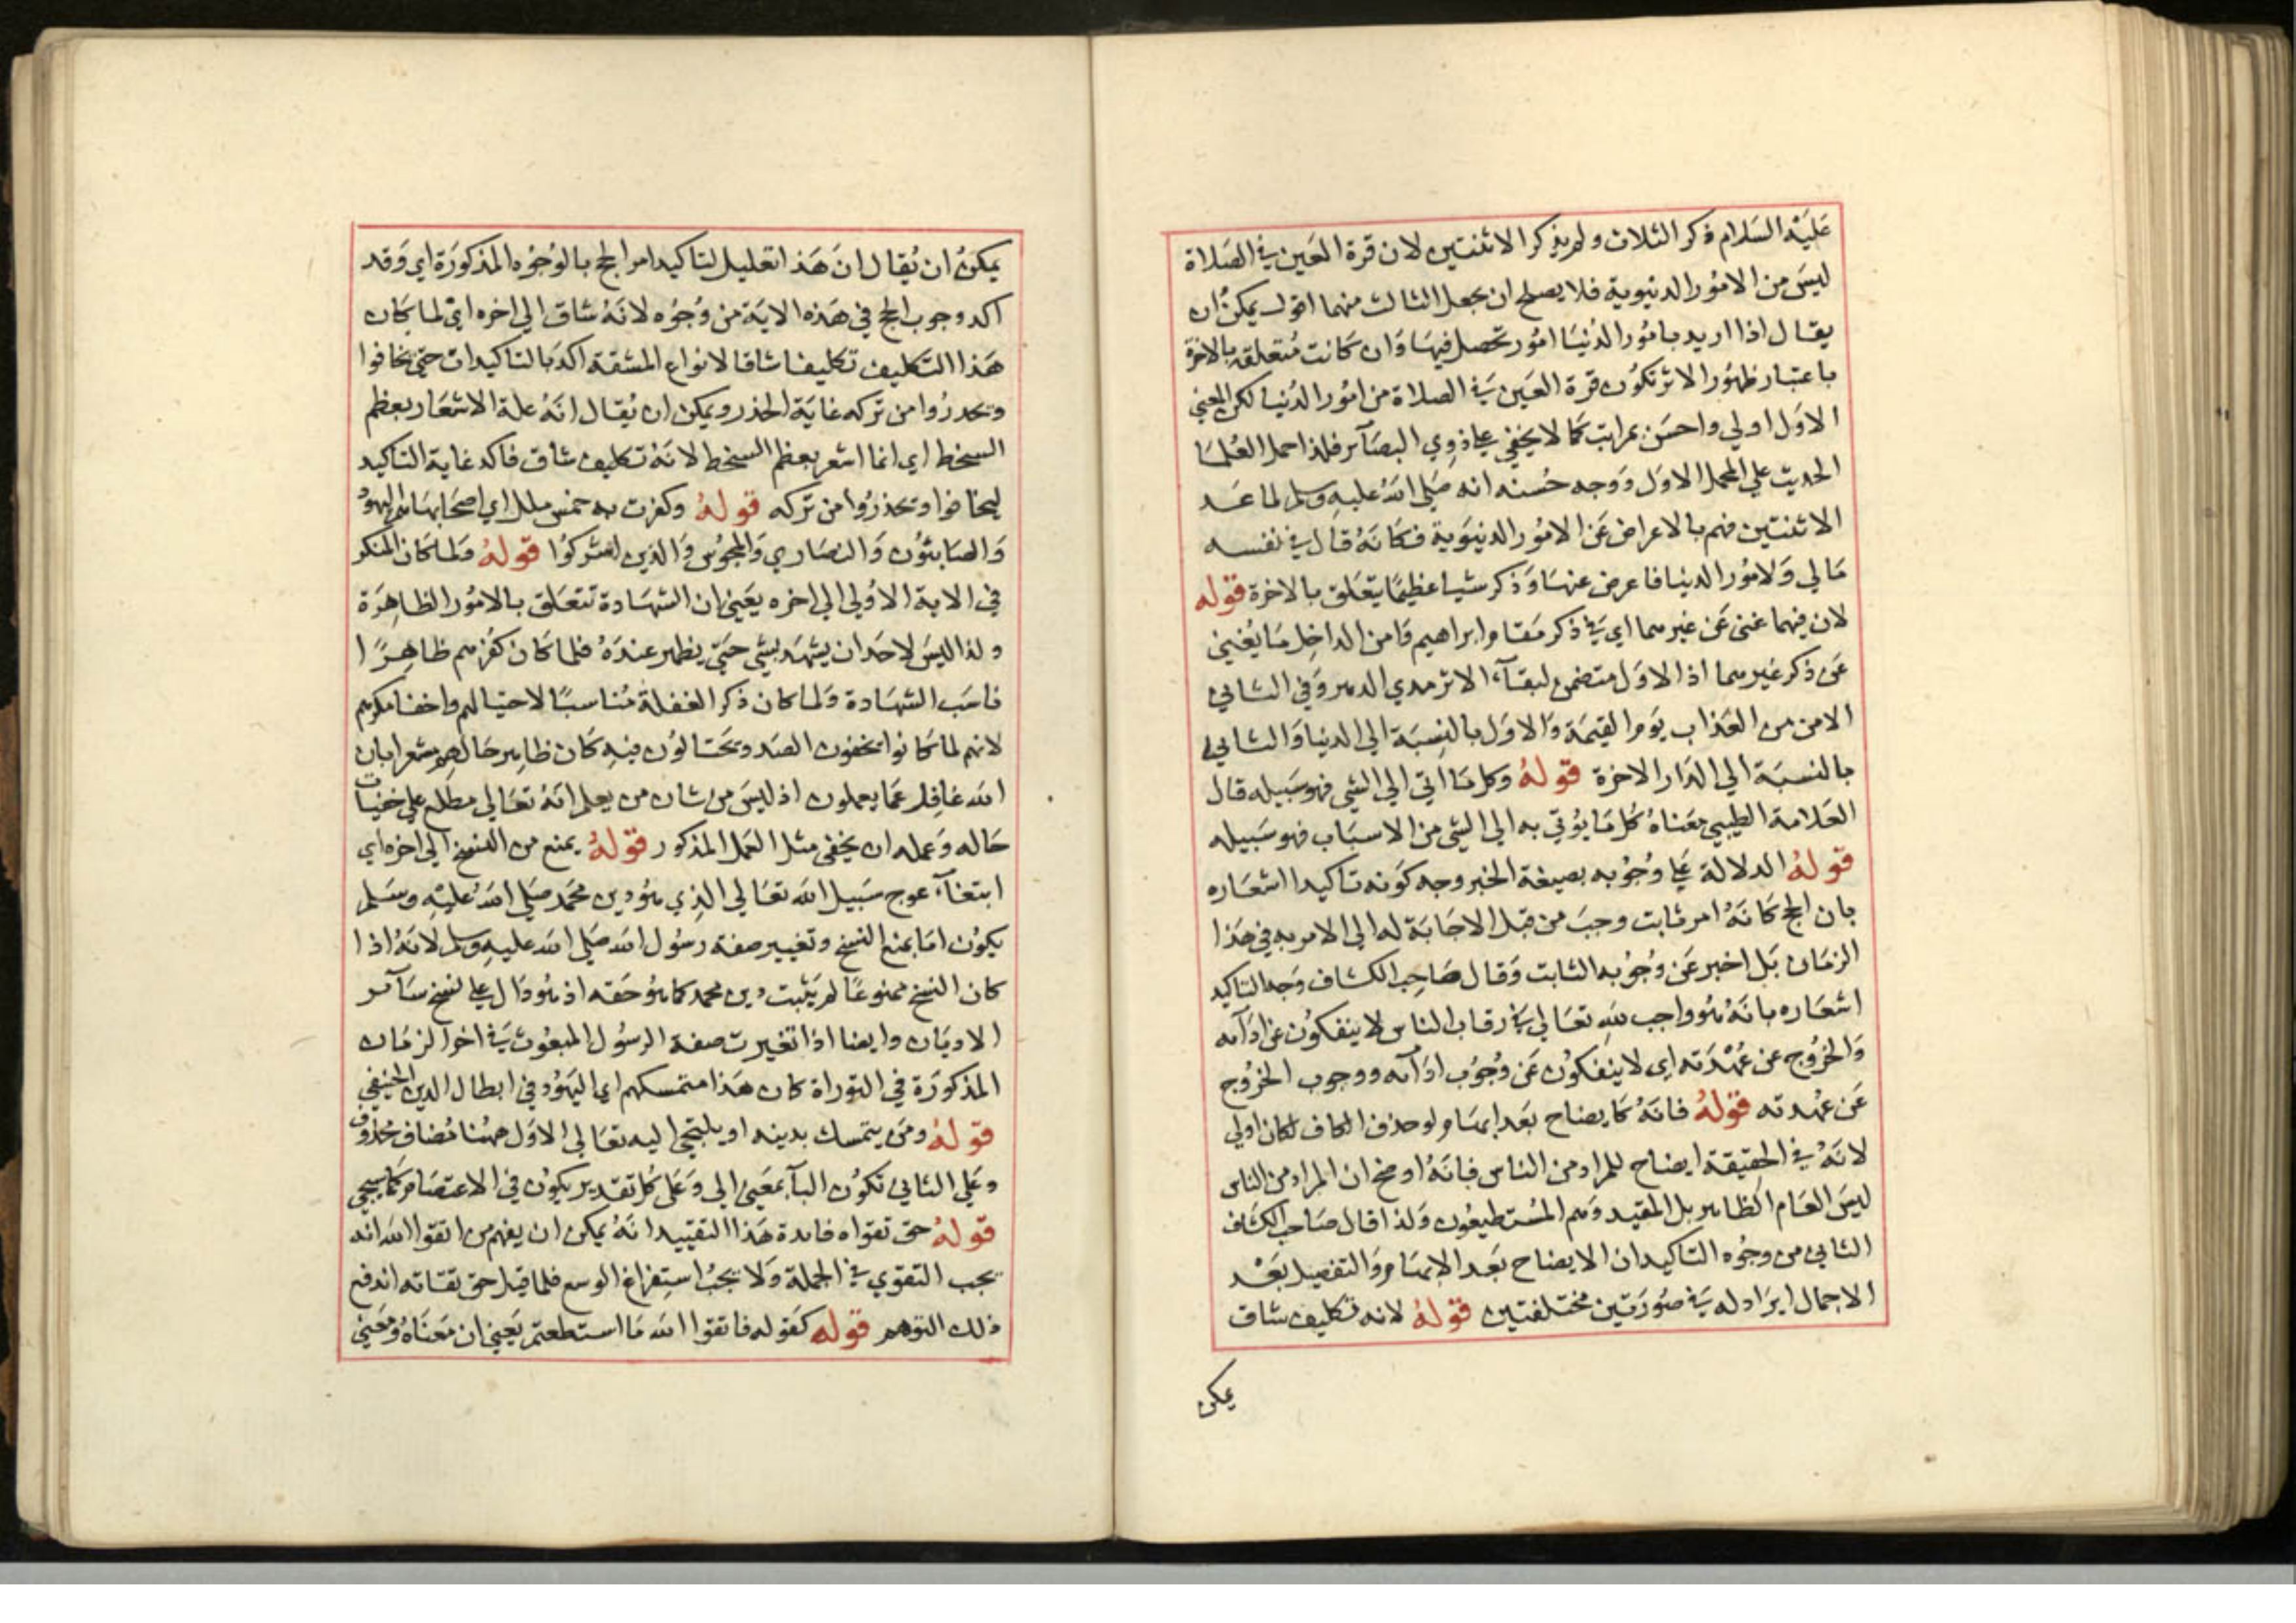 عليه السلام ذكر الثلاث ولم يذكر الاثنتين لان قرة العين في الصلاة
ليس من الامور الدنيوية فلا يصلح ان يجعل الثالث منهما اقول يمكن ان
يقال اذا اريد بامور الدنيا امور تحصل فيها وان كانت متعلقة بالاخرة
باعتبار ظهور الاثر تكون قرة العين في الصلاة من امور الدنيا لكن المعني
الاول اولي واحسن بمراتب كما لا يخفي علي ذوي البصآئر فلذا حمل العلما
الحديث علي المحمل الاول ووجه حسنه انه صلي الله عليه وسلم لما عد
الاثنتين فهم بالاعراض عن الامور الدنيوية فكانه قال في نفسه
مالي ولامور الدنيا فاعرض عنها وذكر شيا عظيما يتعلق بالاخرة قوله
لان فيهما غني عن غيرهما اي في ذكر مقام ابراهيم وامن الداخل ما يغني
عن ذكر غيرهما اذ الاول متضمن لبقآء الاثر مدي الدهر وفي الثاني
الامن من العذاب يوم القيمة والاول بالنسبة الي الدنيا والثاني
بالنسبة الي الدار الاخرة قوله وكل ما اتي الي الشي فهو سبيله قال
العلامة الطيبي معناه كل ما يؤتي به الي الشي من الاسباب فهو سبيله
قوله الدلالة علي وجوبه بصيغة الخبر وجه كونه تاكيدا اشعاره
بان الحج كانه امر ثابت وجب من قبل الاجابة له الي الامر به في هذا
الزمان بل اخبر عن وجوبه الثابت وقال صاحب الكشاف وجه التاكيد
اشعاره بانه هو واجب لله تعالي في رقاب الناس لا ينفكون عن ادآئه
والخروج عن عهدته اي لا ينفكون عن وجوب ادآئه ووجوب الخروج
عن عهدته قوله فانه كايضاح بعد ابهام ولو حذف الكاف لكان اولي
لانه في الحقيقة ايضاح للمراد من الناس فانه اوضح ان المراد من الناس
ليس العام الظاهر بل المقيد وهم المستطيعون ولذا قال صاحب الكشاف
الثاني من وجوه التاكيد ان الايضاح بعد الابهام والتفصيل بعد
الاجمال ايراد له في صورتين مختلفتين قوله لانه تكليف شاق
يمكن
يمكن ان يقال ان هذا تعليل لتاكيد امر الحج بالوجوه المذكورة اي وقد
اكد وجوب الحج في هذه الاية من وجوه لانه شاق الي اخره اي لما كان
هذا التكليف تكليفا شاقا لانواع المشقة اكد بالتاكيدات حتي يخافوا
ويحذروا من تركه غاية الحذر ويمكن ان يقال انه علة الاشعار بعظم
السخط اي انما اشعر بعظم السخط لانه تكليف شاق فاكد غاية التاكيد
ليخافوا وتحذروا من تركه قوله وكفرت به خمس ملل اي اصحابها هم اليهود
والصابئون والنصاري والمجوس والذين اشركوا قوله ولما كان المنكر
في الاية الاولي الي اخره يعني ان الشهادة تتعلق بالامور الظاهرة
ولذا ليس لاحد ان يشهد بشي حتي يظهر عنده فلما كان كفرهم ظاهرا
ناسب الشهادة ولما كان ذكر الغفلة مناسبا لاحتيالهم واخفا مكرهم
لانهم لما كانوا يخفون الصد ويحتالون فيه كان ظاهر حالهم مشعرا بان
الله غافل عما يعملون اذ ليس من شان من يعلم انه تعالي مطلع علي خفيات
حاله وعمله ان يخفي مثل العمل المذكور قوله يمنع من النسخ الي اخره اي
ابتغآء عوج سبيل الله تعالي الذي هو دين محمد صلي الله عليه وسلم
يكون اما بمنع النسخ وتغيير صفة رسول الله صلي الله عليه وسلم لانه اذا
كان النسخ ممنوعا لم يثبت دين محمد كما هو حقه اذ هو دال علي نسخ سآئر
الاديان وايضا اذا تغيرت صفة الرسول المبعوث في اخر الزمان
المذكورة في التوراة كان هذا متمسكهم اي اليهود في ابطال الدين الحنيفي
قوله ومن يتمسك بدينه او يلتجي اليه تعالي الاول ههنا مضاف محذوف
وعلي الثاني تكون البآ بمعني الي وعلي كل تقدير يكون في الاعتصام كما سيجي
قوله حق تقواه فائدة هذا التقييد انه يمكن ان يفهم من اتقوا الله انه
يجب التقوي في الجملة ولا يجب استفراغ الوسع فلما قيل حق تقاته اندفع
ذلك التوهم قوله كقوله فاتقوا الله ما استطعتم يعني ان معناه ومعني